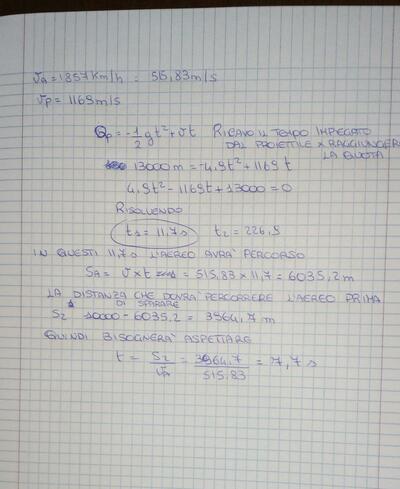 VA = 1857 Km/h = 515,83 m/s
VP = 1169 m/s
Qp = -1/2 g t² + v t RICAVO IL TEMPO IMPIEGATO
DAL PROIETTILE X RAGGIUNGERE
LA QUOTA
13000 m = -4,9t² + 1169 t
4,9t² - 1169t + 13000 = 0
RISOLVENDO
t1 = 11,7s t2 = 226,9
IN QUESTI 11,7s L'AEREO AVRA' PERCORSO
SA = V x t = 515,83 x 11,7 = 6035,2 m
LA DISTANZA CHE DOVRA' PERCORRERE L'AEREO PRIMA
DI SPARARE
S2 10000 - 6035,2 = 3964,7 m
QUINDI BISOGNERA' ASPETTARE
t = S2/VA = 3964,7/515,83 = 7,7 s